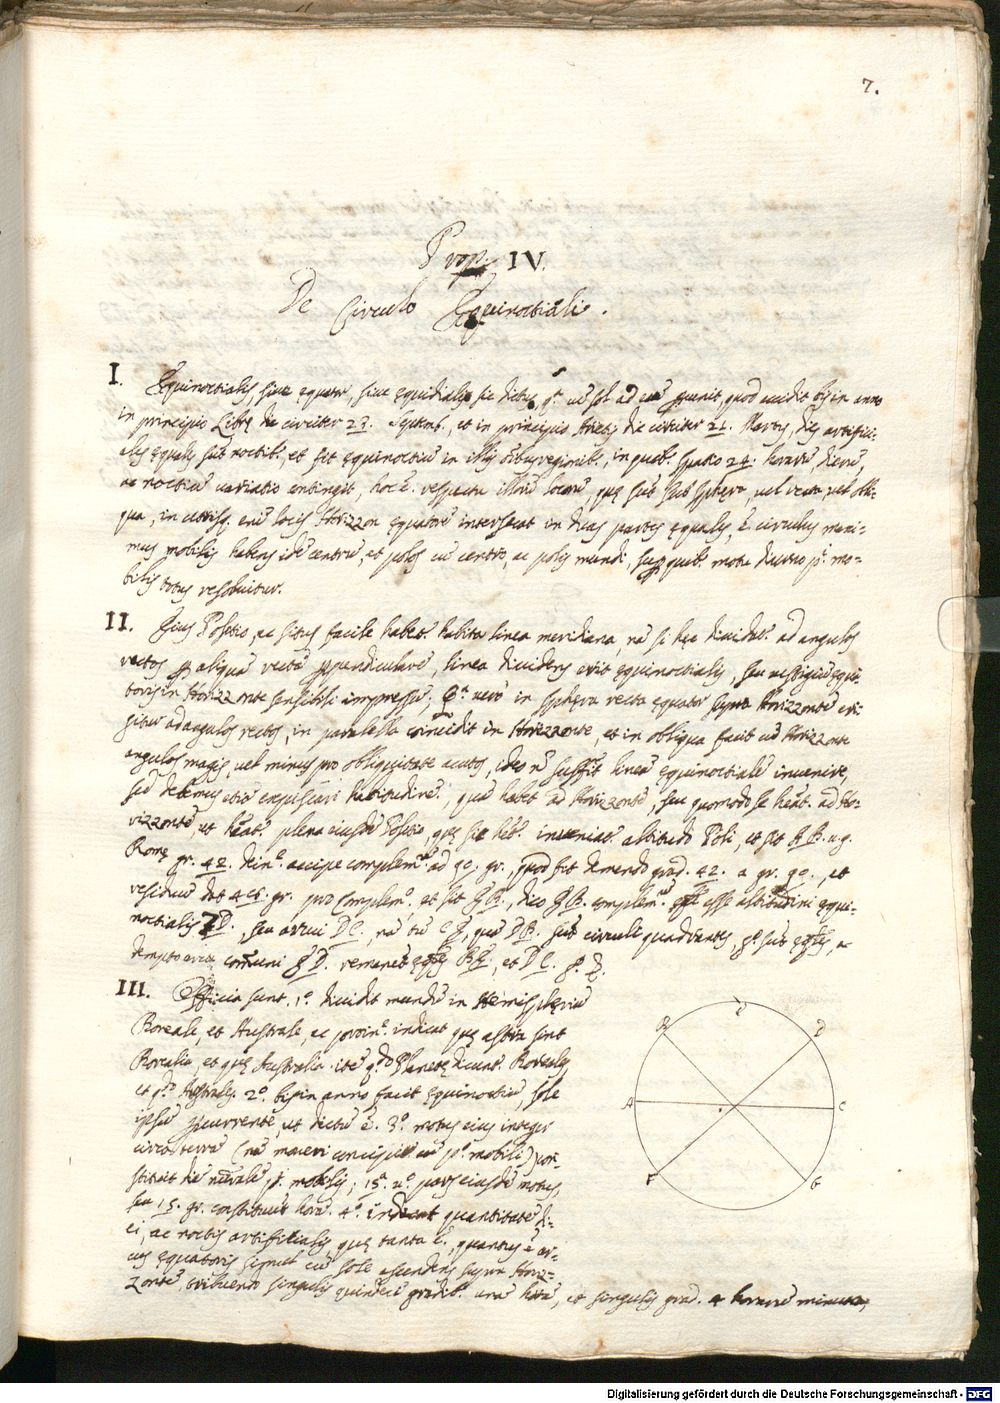 7.
Prop. IV.
De Circulo Æquinoctiali.
I. Æquinoctialis, sive ęquator, sive ęquidialis sic dictus, qd. cū sol ad eū quod accidit bis in anno
in principio Librę die circiter 23. Septemb., et in principio Arietis die circiter 21. Martij, dies artifici-
ales ęquales sūt noctib., et fit ęquinoctiū in illis regionib., in quib. spatio 24. horarū dierū,
ac noctiū variatio contingit, hoc ē. respectu illorū locorū, quę sūt sub sphęra, vel recta, vel obli-
qua, in utrisq. enī locis Horizzon ęquatorē intersecat in duas partes ęquales, ē circulus maxi-
mus mobilis habens idē centrū, et polos cū centro, ac polis mundi, super quib. motu diurno pi. mo-
bilis totus resolvitur.
II. Eius Positio, ac situs facile habet. habita linea meridiana, nā si hęc dividat. ad angulos
rectos per aliquā rectā perpendicularē, linea dividens erit ęquinoctialis, seu vestigiū ęqua-
toris in Horizzonte sensibili impressū; Qa. vero in sphęra recta ęquator supra Horizzontē eri-
gitur ad angulos rectos, in parallella coincidit in Horizzonte, et in obliqua facit cū Horizzonte
angulos magis, vel minus pro obliquitate acutos, ideo nō sufficit lineā ęquinoctialē invenire,
sed debemus etiā habitudinē, quā habet ad Horizzontē, seu quomodo se heat. ad Ho-
rizzontē, ut heat. plena eiusdē Positio, quę sic heb. inveniat. altitudo Poli, et sit A B. v.g.
Romę gr. 42. dein. accipe complem.um ad 90. gr., quod fit demendo grad. 42. a gr. 90., et
residuū det 48. gr. pro complem.o, et sit E B., dico E B. complem.um esse altitudini ęqui-
noctialis D., seu arcui DC., nā tū quā DB. sūt circuli quadrantes, sūt ęqles, a
dempto arcu cōmuni E D. remanēt ęqles BE., et DC.
III. Officia sunt. 1o. dividit mundū in Hemisphęriū
Boreale, et Australe, ac proin. indicat quę astra sint
Borealia, et quę Australia. itē qdo Planetę dicunt. Boreales
et qdo Australes. 2o. bis in anno facit ęquinoctiū, sole
ipsū percurrente, ut dictū ē. 3o. motus eius integer
circa terrā (nā moveri concipit. cū po. mobili) con-
stituit diē naturalē pi. mobilis; 15a. vo. pars eiusdē motus,
seu 15. gr. constituit horā. 4o. indicat quantitatē di-
ei, ac noctis artificialis, quę tanta ē, quantus ē ar-
cus ęquatoris simul cū sole ascendens supra Horiz-
zontē, tribuendo singulis quindecī gradib. unā horā, et singulis grad. 4 horarū minuta,
B
E
D
A
C
F
G
Digitalisierung gefördert durch die Deutsche Forschungsgemeinschaft - DFG